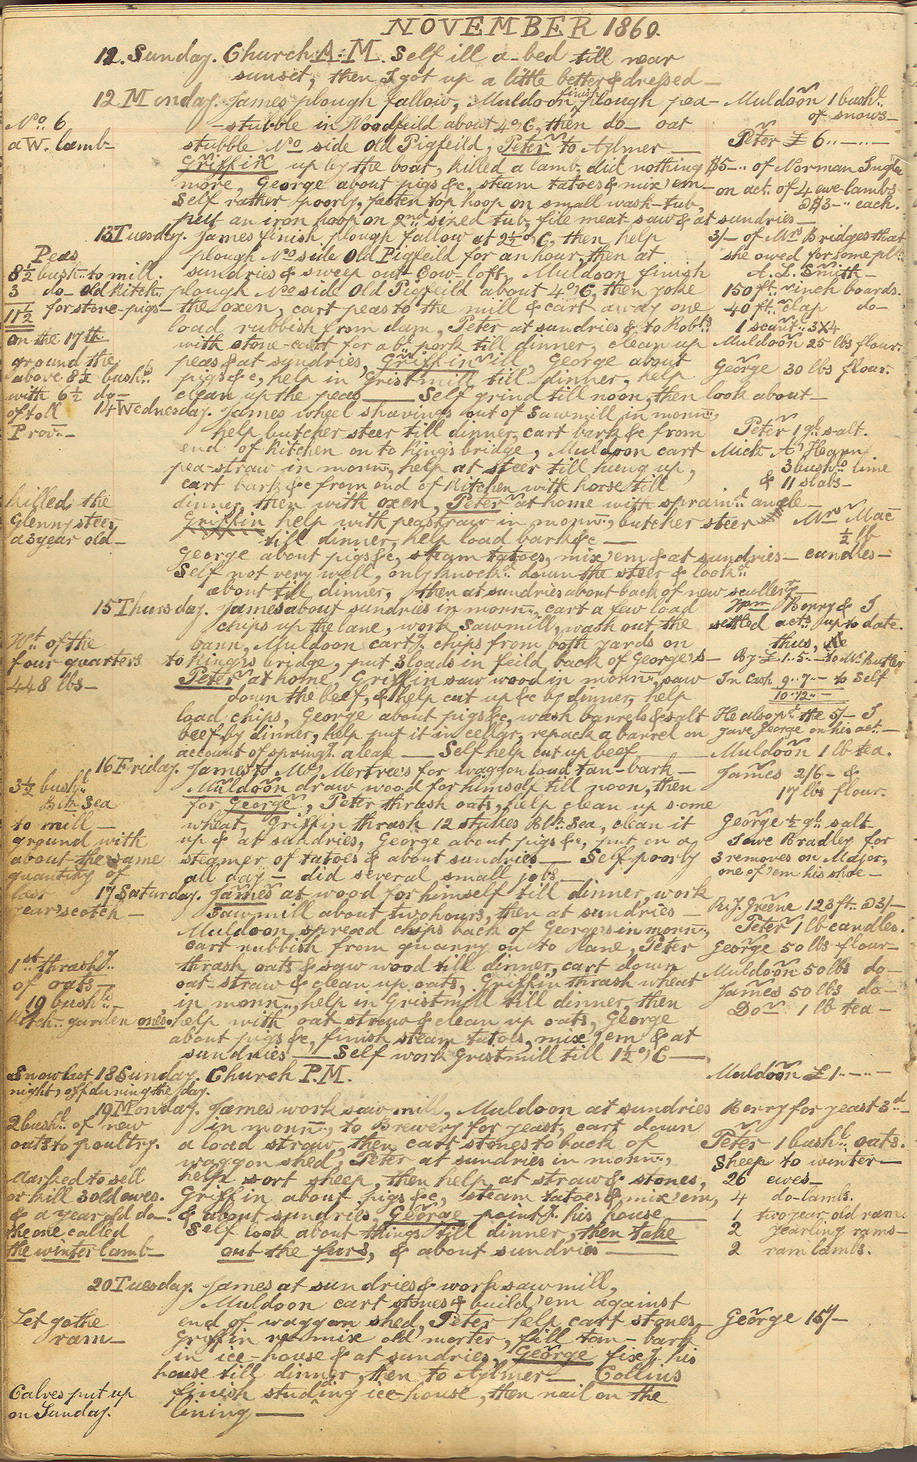 NOVEMBER 1860.
11. Sunday. Church A.M. Self ill a-bed till near
sunset, then I got up a little better & dressed —
12 Monday. James plough fallow, Muldoon finish plough pea- Muldoon 1 bushl.
No. 6 — stubble in Woodfeild about 4 o,C, then do— oat of snows —
a W. lamb — stubble No side Old Pigfeild, Peter to Aylmer — Peter £ 6..—..—
Griffin up by the boat, killed a lamb, did nothing $5-.. of Norman Ingle
more, George about pigs &c, steam tatoes & mix 'em — on act. of 4 ewe-lambs
Self rather poorly, fasten top hoop on small wash-tub, @ $3-.. each.
put an iron hoop on 2nd sized tub, file meat saw & at sundries —
13 Tuesday. James finish plough fallow at 2½ o,C, then help 3/- of Mrs. Bridges that
Peas plough No side Old Pigfeild for an hour, then at she owed for some
8½ bushl. to mill. sundries & sweep out Cow-loft, Muldoon finish A. L. Smith —
3 do- Old Kitch. plough No side Old Pigfeild about 4 o,C, then yoke 150 ft. inch boards.
11½ for store-pigs — the oxen, cart peas to the mill & cart away one 40 ft. slap do—
load rubbish from dam, Peter at sundries & to Robt. 1 scant. 3x4
on the 17th with stone-cart for a bl. pork till dinner, clean up Muldoon 25 lbs flour.
ground the peas & at sundries, Griffin ill, George about
above 8½ bushl. pigs &c, help in Gristmill till dinner, help George 30 lbs flour.
with 6½ do— clean up the peas — Self grind till noon, then look about —
of toll 14 Wednesday. James wheel shavings out of Sawmill in morn.,
Prov. — help butcher steer till dinner, cart bark &c from Peter 1 qt. salt.
end of Kitchen on to Kings bridge, Muldoon cart Mick
pea-straw in morn., help at steer till hung up, 3 bushl. lime
cart bark &c from end of Kitchen with horse till & 11 slabs —
Killed the dinner, then with oxen, Peter at home with spraind. ancle —
Glenny steer, Griffin help with peastraw in morn., butcher steer Mrs. Mac
a 3 year old — till dinner, help load bark &c — ½ lb
George about pigs &c, steam tatoes, mix 'em & at sundries — candles —
Self not very well, only knockd. down the steer & lookd.
about till dinner, then at sundries about back of new scullery —
15 Thursday. James about sundries in morn., cart a few load Wm Berry & I
chips up the lane, work Sawmill, wash out the settled acts. up to date.
Wt. of the barn, Muldoon cartg. chips from both yards on thus,
four-quarters to King's bridge, put 3 loads in feild back of George's — By £ 1..5.. to Mr. Rutley
448 lbs — Peter at home, Griffin saw wood in morn., saw In Cash 9..7— to Self
down the beef, & help cut up &c by dinner, help 10..12..—
load chips, George about pigs &c, wash barrels & salt He also pd. the 5/- I
beef by dinner, help put it in cellar, repack a barrel on gave George on his act. —
account of springg. a leak — Self help cut up beef — Muldoon 1 lb tea.
16 Friday. James to Mc. Mertree's for waggon load tan-bark — James 2/6- &
3½ bushl. Muldoon draw wood for himself till noon, then 17 lbs flour.
Blk. Sea for George, Peter thrash oats, help clean up some
to mill — wheat, Griffin thrash 12 stukes Blk. Sea, clean it George ½ gl. salt
ground with up & at sundries, George about pigs &c, put in a I owe Bradley for
about the same steamer of tatoes & about sundries — Self poorly 3 removes on Major,
quantity of all day — did several small jobs — one of 'em his shoe —
last 17 Saturday. James at wood for himself till dinner, work
year's cotch — Sawmill about two hours, then at sundries — B. J. Greene 123 ft. @ 3/-
Muldoon spread chips back of George's in morn., Peter 1 lb candles.
cart rubbish from quarry on to Lane, Peter George 50 lbs flour —
1st thrashg. thrash oats & saw wood till dinner, cart down Muldoon 50 lbs do—
of oats — oat-straw & clean up oats, Griffin thrash wheat James 50 lbs do—
19 bushl. — in morn., help in Gristmill till dinner, then Do— 1 lb tea —
Kitch. garden ones. help with oat straw & clean up oats, George
about pigs &c, finish steam tatoes, mix 'em & at
sundries — Self work Gristmill till 1½ o,C —
Snow last 18 Sunday. Church P.M. Muldoon £1-..—..—
night, off during the day.
19 Monday. James work sawmill, Muldoon at sundries Berry for yeast 3d—
2 bushl. of new in morn., to Brewery for yeast, cart down
oats to poultry. a load straw, then cart stones to back of Peter 1 bushl. oats.
waggon shed, Peter at sundries in morn., Sheep to winter —
Marked to sell help sort sheep, then help at straw & stones, 26 ewes —
or kill 3 old ewes. Griffin about pigs &c, steam tatoes & mix 'em, 4 do- lambs.
& a year old do- & about sundries, George paintg. his house — 1 two year old ram.
the one called Self look about things till dinner, then take 2 yearling rams —
the winter lamb — out the furs, & about sundries — 2 ram lambs.
20 Tuesday. James at sundries & work sawmill,
Muldoon cart stones & build 'em against
Let go the end of waggon shed, Peter help cart stones, George 15/-
ram — Griffin mix old morter, fill tan-bark
in ice-house & at sundries, George fixg. his
house till dinner, then to Aylmer — Collins
Calves put up finish studing ice-house, then nail on the
on Sunday. lining —